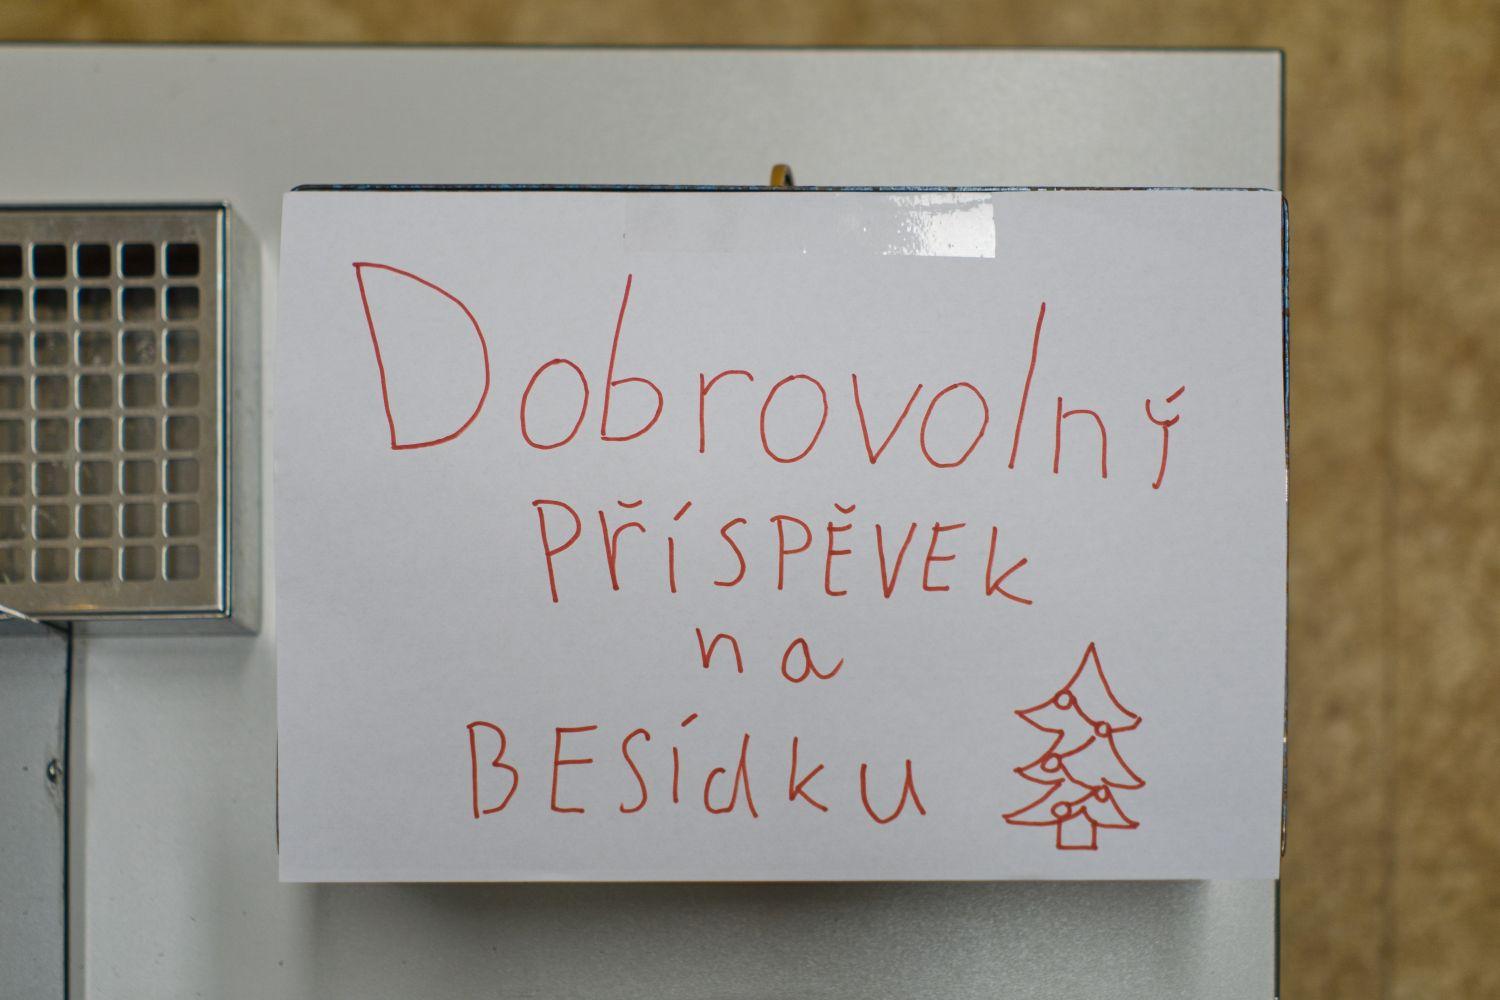 Dobrovolný
PŘÍSPĚVEK
na
BESÍdKU